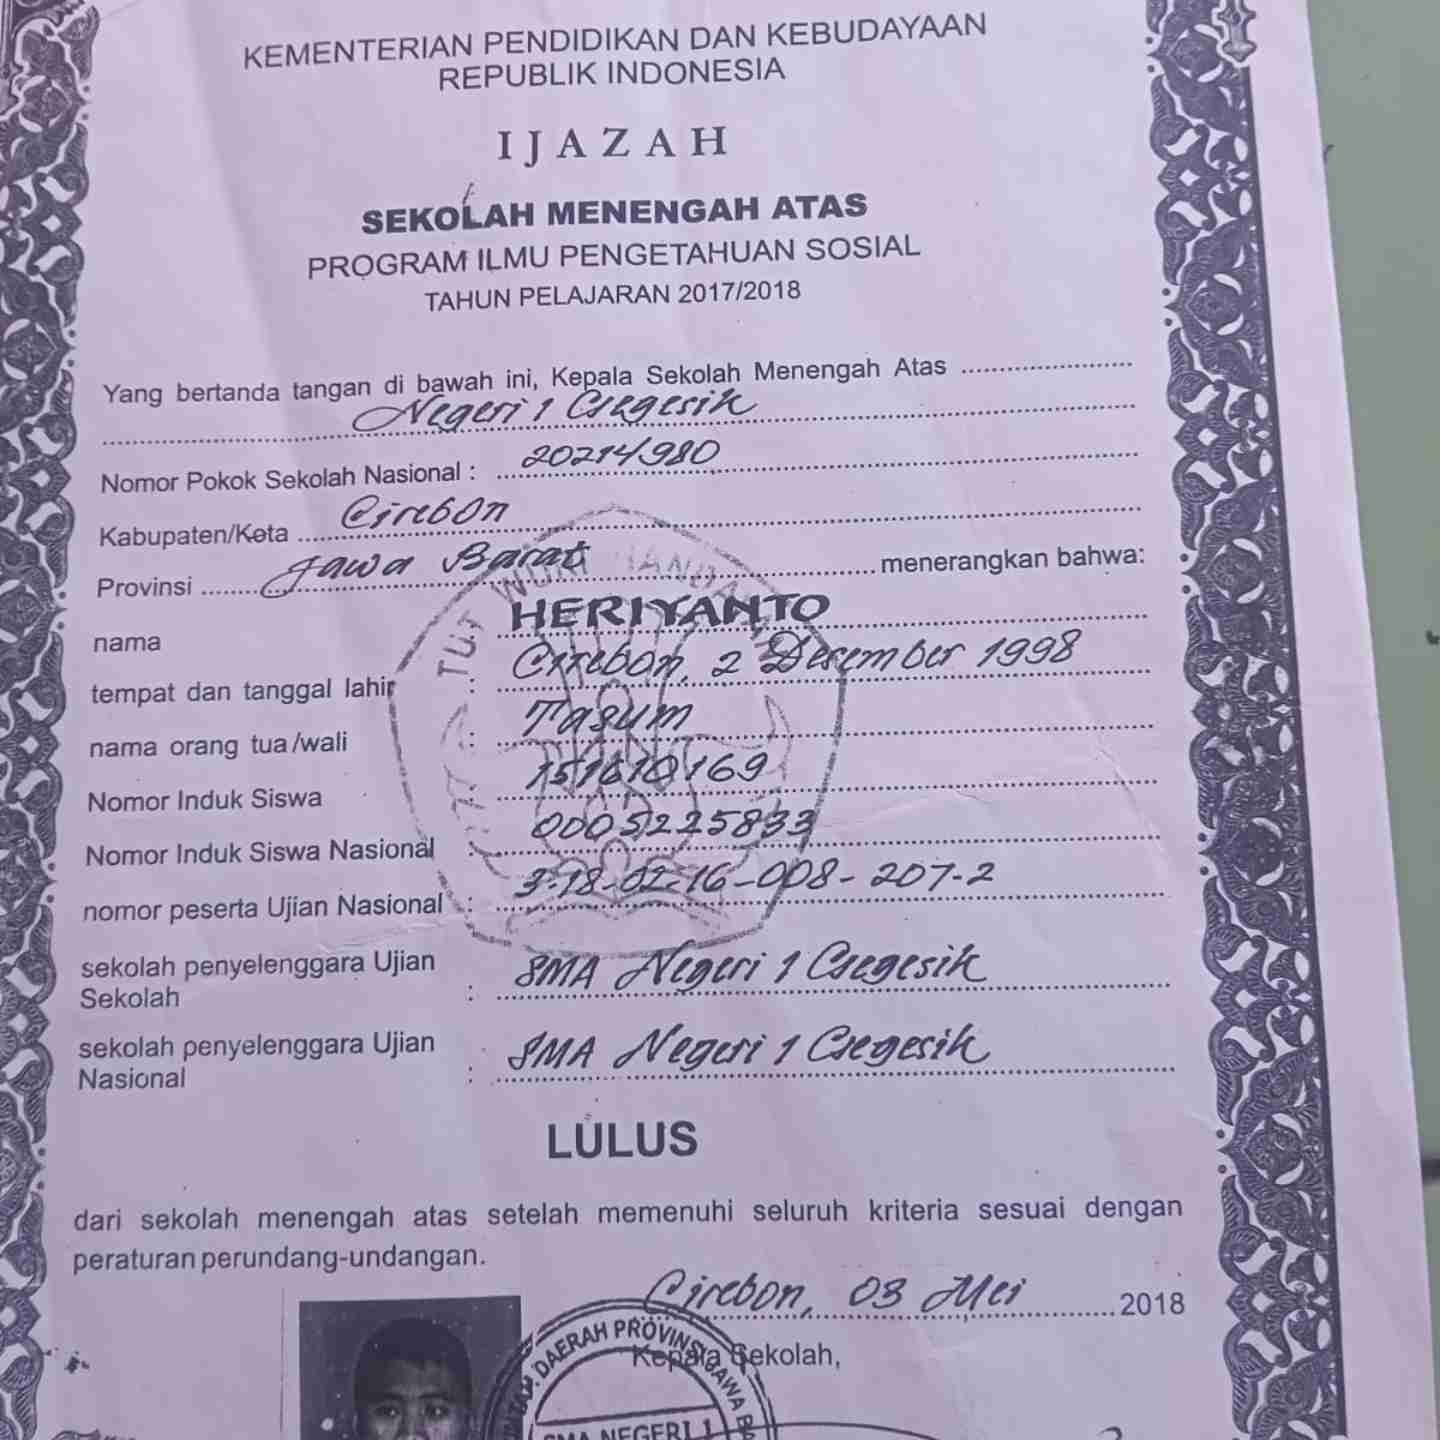 KEMENTERIAN PENDIDIKAN DAN KEBUDAYAAN
REPUBLIK INDONESIA
IJAZAH
SEKOLAH MENENGAH ATAS
PROGRAM ILMU PENGETAHUAN SOSIAL
TAHUN PELAJARAN 2017/2018
Yang bertanda tangan di bawah ini, Kepala Sekolah Menengah Atas
Negeri 1 Ciegesik
Nomor Pokok Sekolah Nasional : 20214980
Kabupaten/Kota Cirebon
Provinsi Jawa Barat menerangkan bahwa:
nama HERIYANTO
tempat dan tanggal lahir : Cirebon, 2 Desember 1998
nama orang tua/wali : Tasum
Nomor Induk Siswa 151610169
Nomor Induk Siswa Nasional : 0005225833
nomor peserta Ujian Nasional : 3-18-02-16-008-207-2
sekolah penyelenggara Ujian
Sekolah : SMA Negeri 1 Ciegesik
sekolah penyelenggara Ujian
Nasional : SMA Negeri 1 Ciegesik
LULUS
dari sekolah menengah atas setelah memenuhi seluruh kriteria sesuai dengan
peraturan perundang-undangan.
Cirebon, 03 Mei 2018
Kepala Sekolah,
DAERAH PROVINSI JAWA
SMA NEGERI 1
TUT WURI HANDA